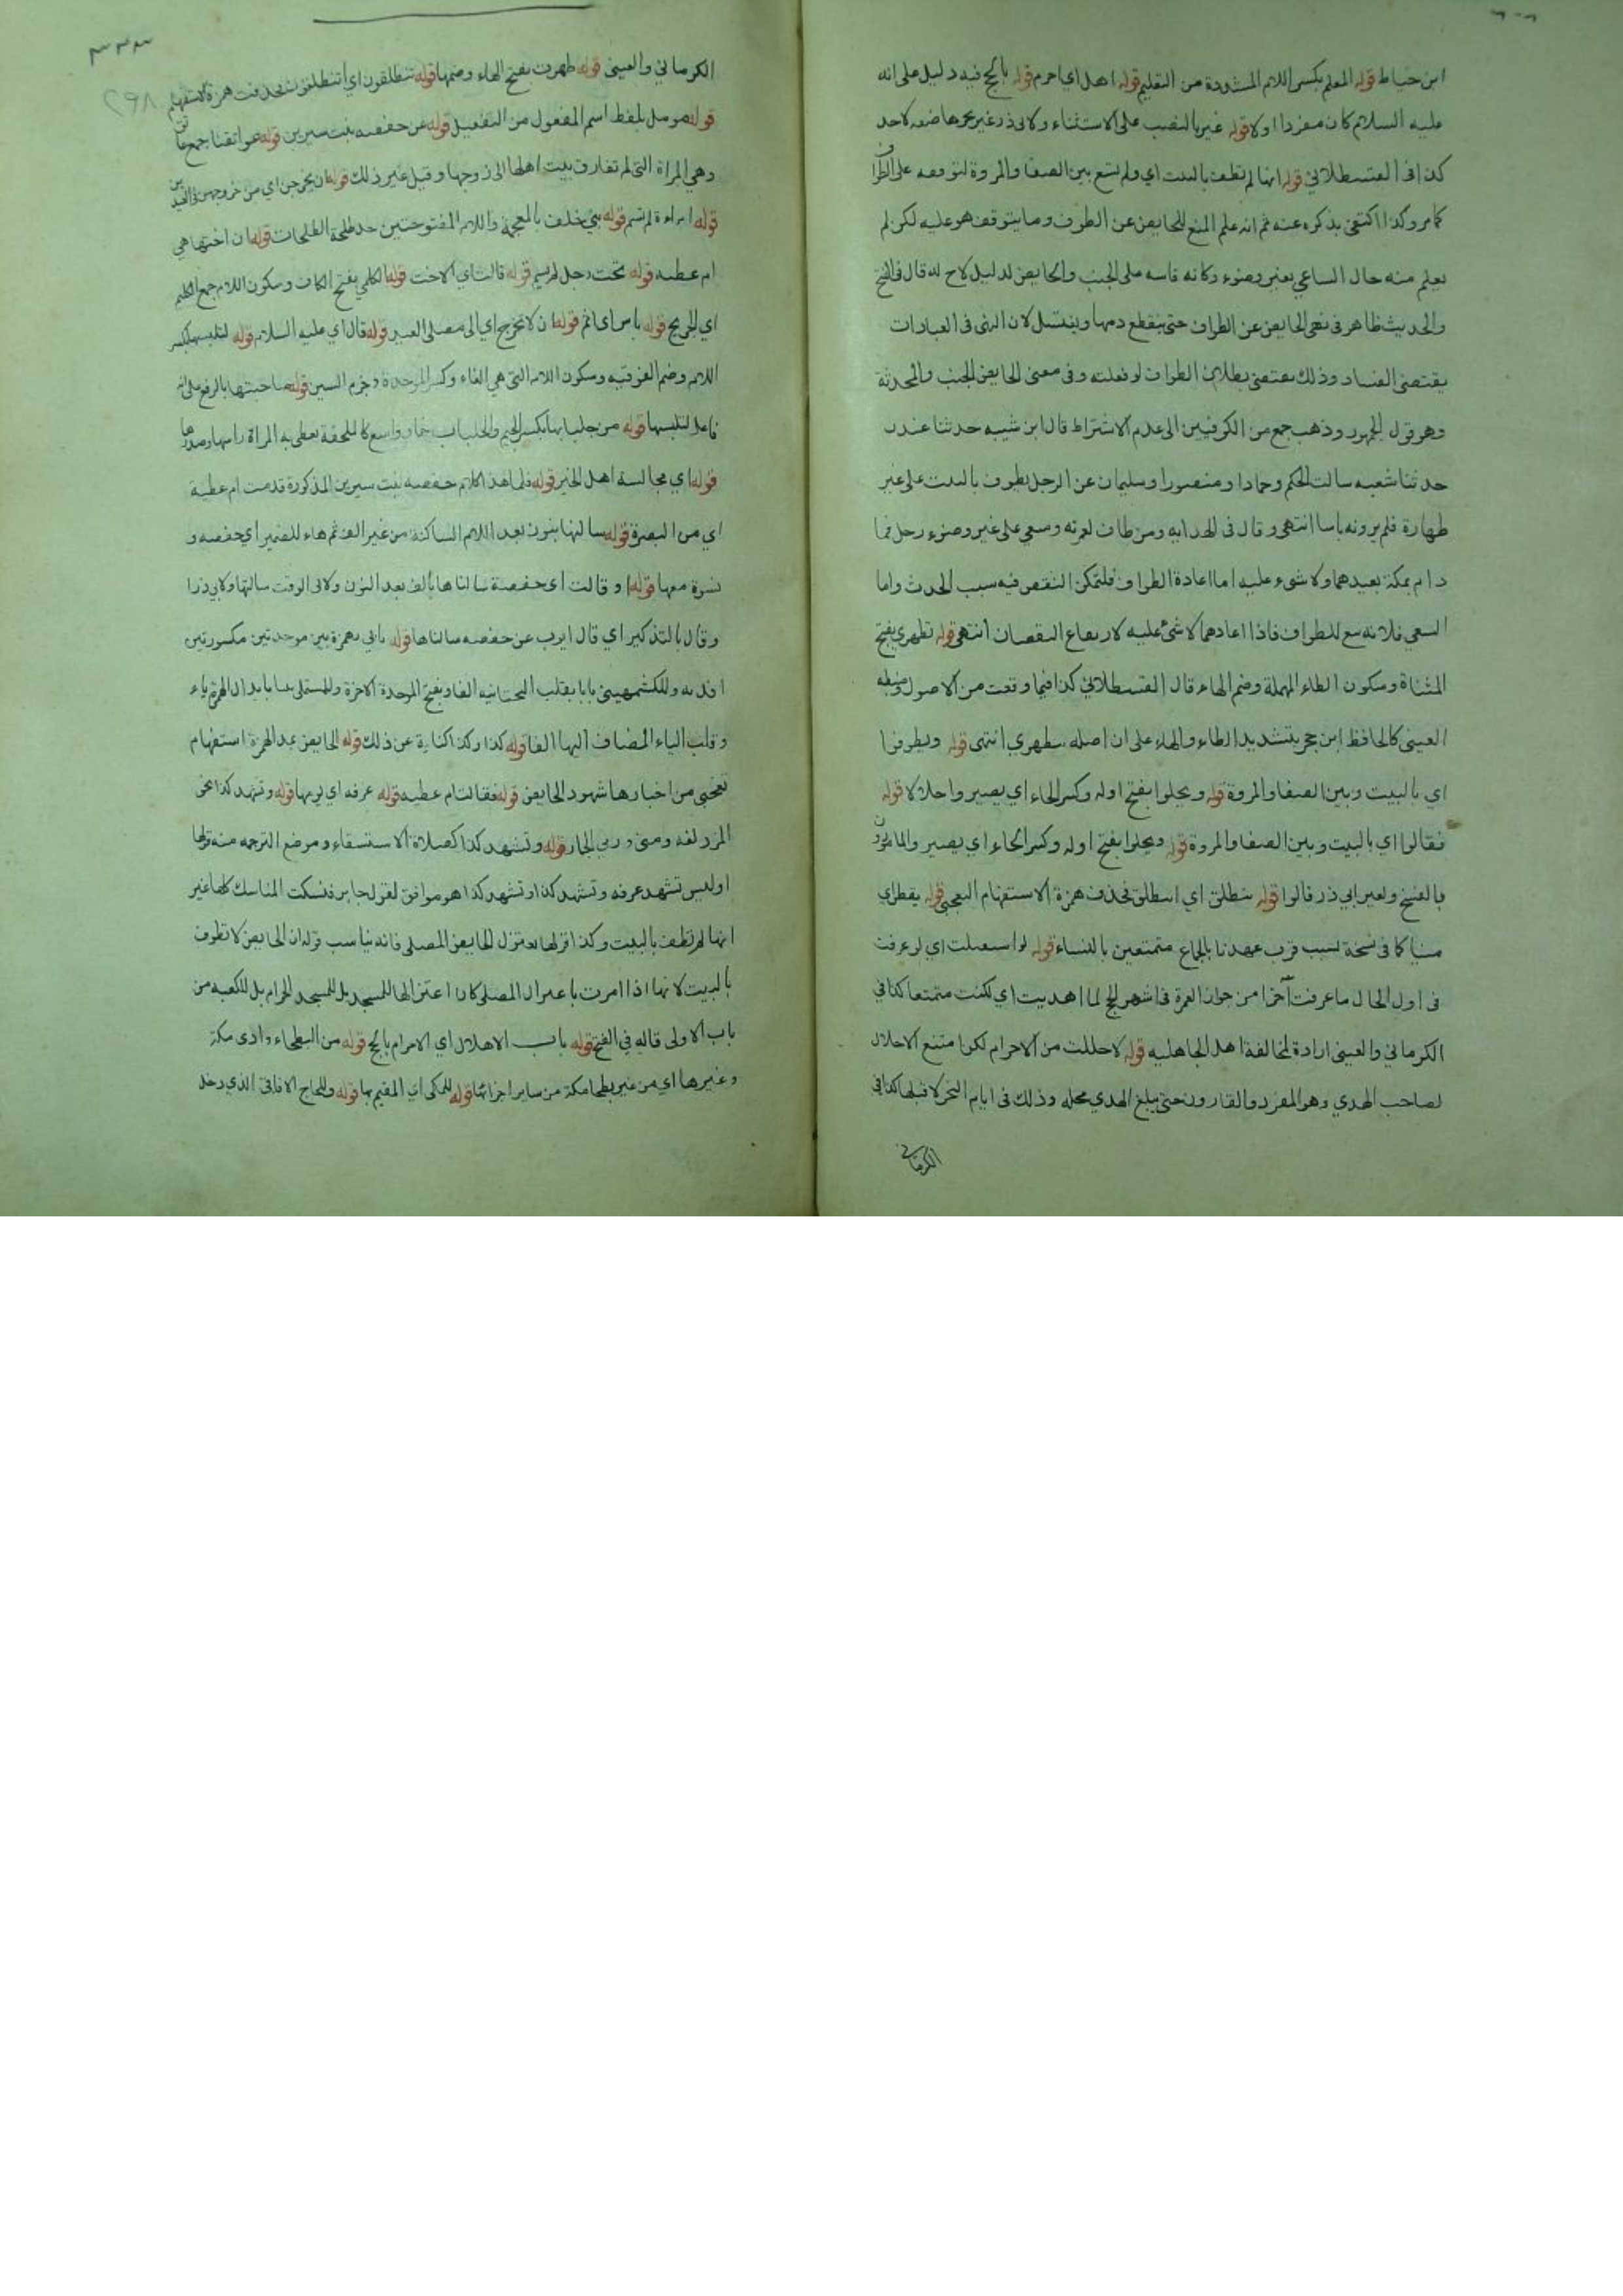 ابن خياط قوله المعلم بكسر اللام المشددة من التعليم قوله اهل اي احرم قوله بالحج فيه دليل على انه
عليه السلام كان مفردا اولا قوله غير بالنصب على الاستثناء ولابي ذر غير بجرها صفة لاحد
كذا في القسطلاني قوله انها لم تطف بالبيت اي ولم تسع بين الصفا والمروة لتوقفه على الطواف
كما مر وكذا اكتفى بذكره عنه ثم انه علم المنع للحايض عن الطوف وما يتوقف هو عليه لكن لم
يعلم منه حال الساعي بغير وضوء وكانه قاسه على الجنب والحايض لدليل لاح له قال في الفتح
والحديث ظاهر في نهي الحايض عن الطواف حتى ينقطع دمها ويغتسل لان النهي في العبادات
يقتضى الفساد وذلك يقتضى بطلان الطواف لو فعلته وفي معنى الحايض الجنب والمحدثة
وهو قول الجمهور وذهب جمع من الكوفيين الى عدم الاشتراط قال ابن شيبه حدثنا غندر
حدثنا شعبه سالت الحكم وحمادا ومنصورا وسليمان عن الرجل يطوف بالبيت على غير
طهارة فلم يرونه باسا انتهى وقال في الهدايه ومن طاف لعمرته وسعى على غير وضوء وحل فما
دام بمكة يعيدهما ولا شيء عليه اما اعادة الطواف فلتمكن النقص فيه سبب الحدث واما
السعي فلانه تبع للطواف فاذا اعادهما لا شئ عليه لارتفاع النقصان انتهى قوله تطهري بفتح
المثناة وسكون الطاء المهملة وضم الهاء قال القسطلاني كذا فيما وقعت من الاصول وضبطه
العينى كالحافظ ابن حجر بتشديد الطاء والهاء على ان اصله تتطهري انتهى قوله ويطوفوا
اي بالبيت وبين الصفا والمروة قوله ويحلوا بفتح اوله وكسر الحاء اي يصير واحلالا قوله
فقالوا اي بالبيت وبين الصفا والمروة قوله ويحلوا بفتح اوله وكسر الحاء اي يصير والمامورون
بالفسخ ولغير ابي ذر قالوا قوله ننطلق اي اننطلق فحذف همزة الاستفهام التعجبي قوله يقطر اي
منيا كما في نسخة لسبب قرب عهدنا بالجماع متمتعين بالنساء قوله لو استقبلت اي لو عرفت
في اول الحال ما عرفت آخرا من جواز العمرة في اشهر الحج لما اهديت اي لكنت متمتعا كذا في
الكرماني والعينى ارادة لمخالفة اهل الجاهليه قوله لاحللت من الاحرام لكن امتنع الاحلال
لصاحب الهدي وهو المفرد والقارون حتى يبلغ الهدي محله وذلك في ايام النحر لا قبلها كذا في
الكرماني
٣٣٣
٢٩٨
الكرماني والعينى قوله طهرت بفتح الهاء وضمها قوله تنطلقون اي أتنطلقون فحذفت همزة الاستفهام
قوله موسل بلفظ اسم المفعول من التفعيل قوله عن حفصه بنت سيرين قوله عواتقنا جمع عاتق
وهي المراة التى لم تفارق بيت اهلها الى زوجها وقيل غير ذلك قوله ان يخرجن اي من خروجهن في العيدين
قوله امراءة لم تسم قوله بني خلف بالمعجمة واللام المفتوحتين جد طلحة الطلحات قوله ان اختها هي
ام عطيه قوله تحت رجل لم يسم قوله قالت اي الاخت قوله الكلمي بفتح الكاف وسكون اللام جمع الكليم
اي الجريح قوله باس اى اثم قوله ان لا تخرج اي الى مصلى العيد قوله قال اي عليه السلام قوله لتلبسها بكسر
اللام وضم الفوقيه وسكون اللام التى هي الفاء وكسر الموحدة وجزم السين قوله صاحبتها بالرفع على انه
فاعل لتلبسها قوله من جلبابها بكسر الجيم والجلباب خمار واسع كالملحفة تغطى به المراة راسها وصدرها
قوله اي مجالسة اهل الخير قوله فلما هذا كلام حفصه بنت سيرين المذكورة قدمت ام عطية
اي من البصرة قوله سالنها بنون بعد اللام الساكنة من غير الف ثم هاء للضمير اي حفصه و
نسوة معها قوله او قالت اي حفصة سالناها بالف بعد النون ولابي الوقت سالتها ولابي ذر ا
وقال بالتذكير اي قال ايوب عن حفصه سالناها قوله بابي بهمزة بين موحدتين مكسورتين
افديه وللكشميهيني بابا بقلب التحتانيه الفا وبفتح الموحدة الاخرة وللمستملى بيبا بابدال الهمزة ياء
وقلب الياء المضاف اليها الفا قوله كذا وكذا كناية عن ذلك قوله الحايض بمد الهمزة استفهام
تعجبي من اخبارها شهود الحايض قوله فقالت ام عطيه قوله عرفه اي يومها قوله وتشهد كذا نحو
المزدلفه ومنى ورمي الجمار قوله وتشهد كذا كصلاة الاستسقاء وموضع الترجمه منه قولها
اوليس تشهد عرفه وتشهد كذا وتشهد كذا هو موافق لقول جابر فنسكت المناسك كلها غير
انها لم تطف بالبيت وكذا قولها يعتزل الحايض المصلى فانه يناسب قوله ان الحايض لا تطوف
بالبيت لانها اذا امرت باعتزال المصلى كان اعتزالها للمسجد بل للمسجد الحرام بل للكعبه من
باب الاولى قاله في الفتح قوله باب الاهلال اي الاحرام بالحج قوله من البطحاء وادى مكة
وغيرها اي من غير بطحا مكة من ساير اجزائها قوله للمكى اي المقيم بها قوله وللحاج الافاقى الذي دخل